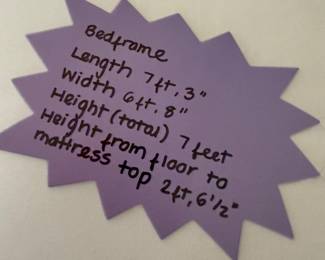 Bedframe
Length 7ft, 3"
Width 6ft. 8"
Height (total) 7 feet
Height from floor to
mattress top 2ft, 6 1/2"